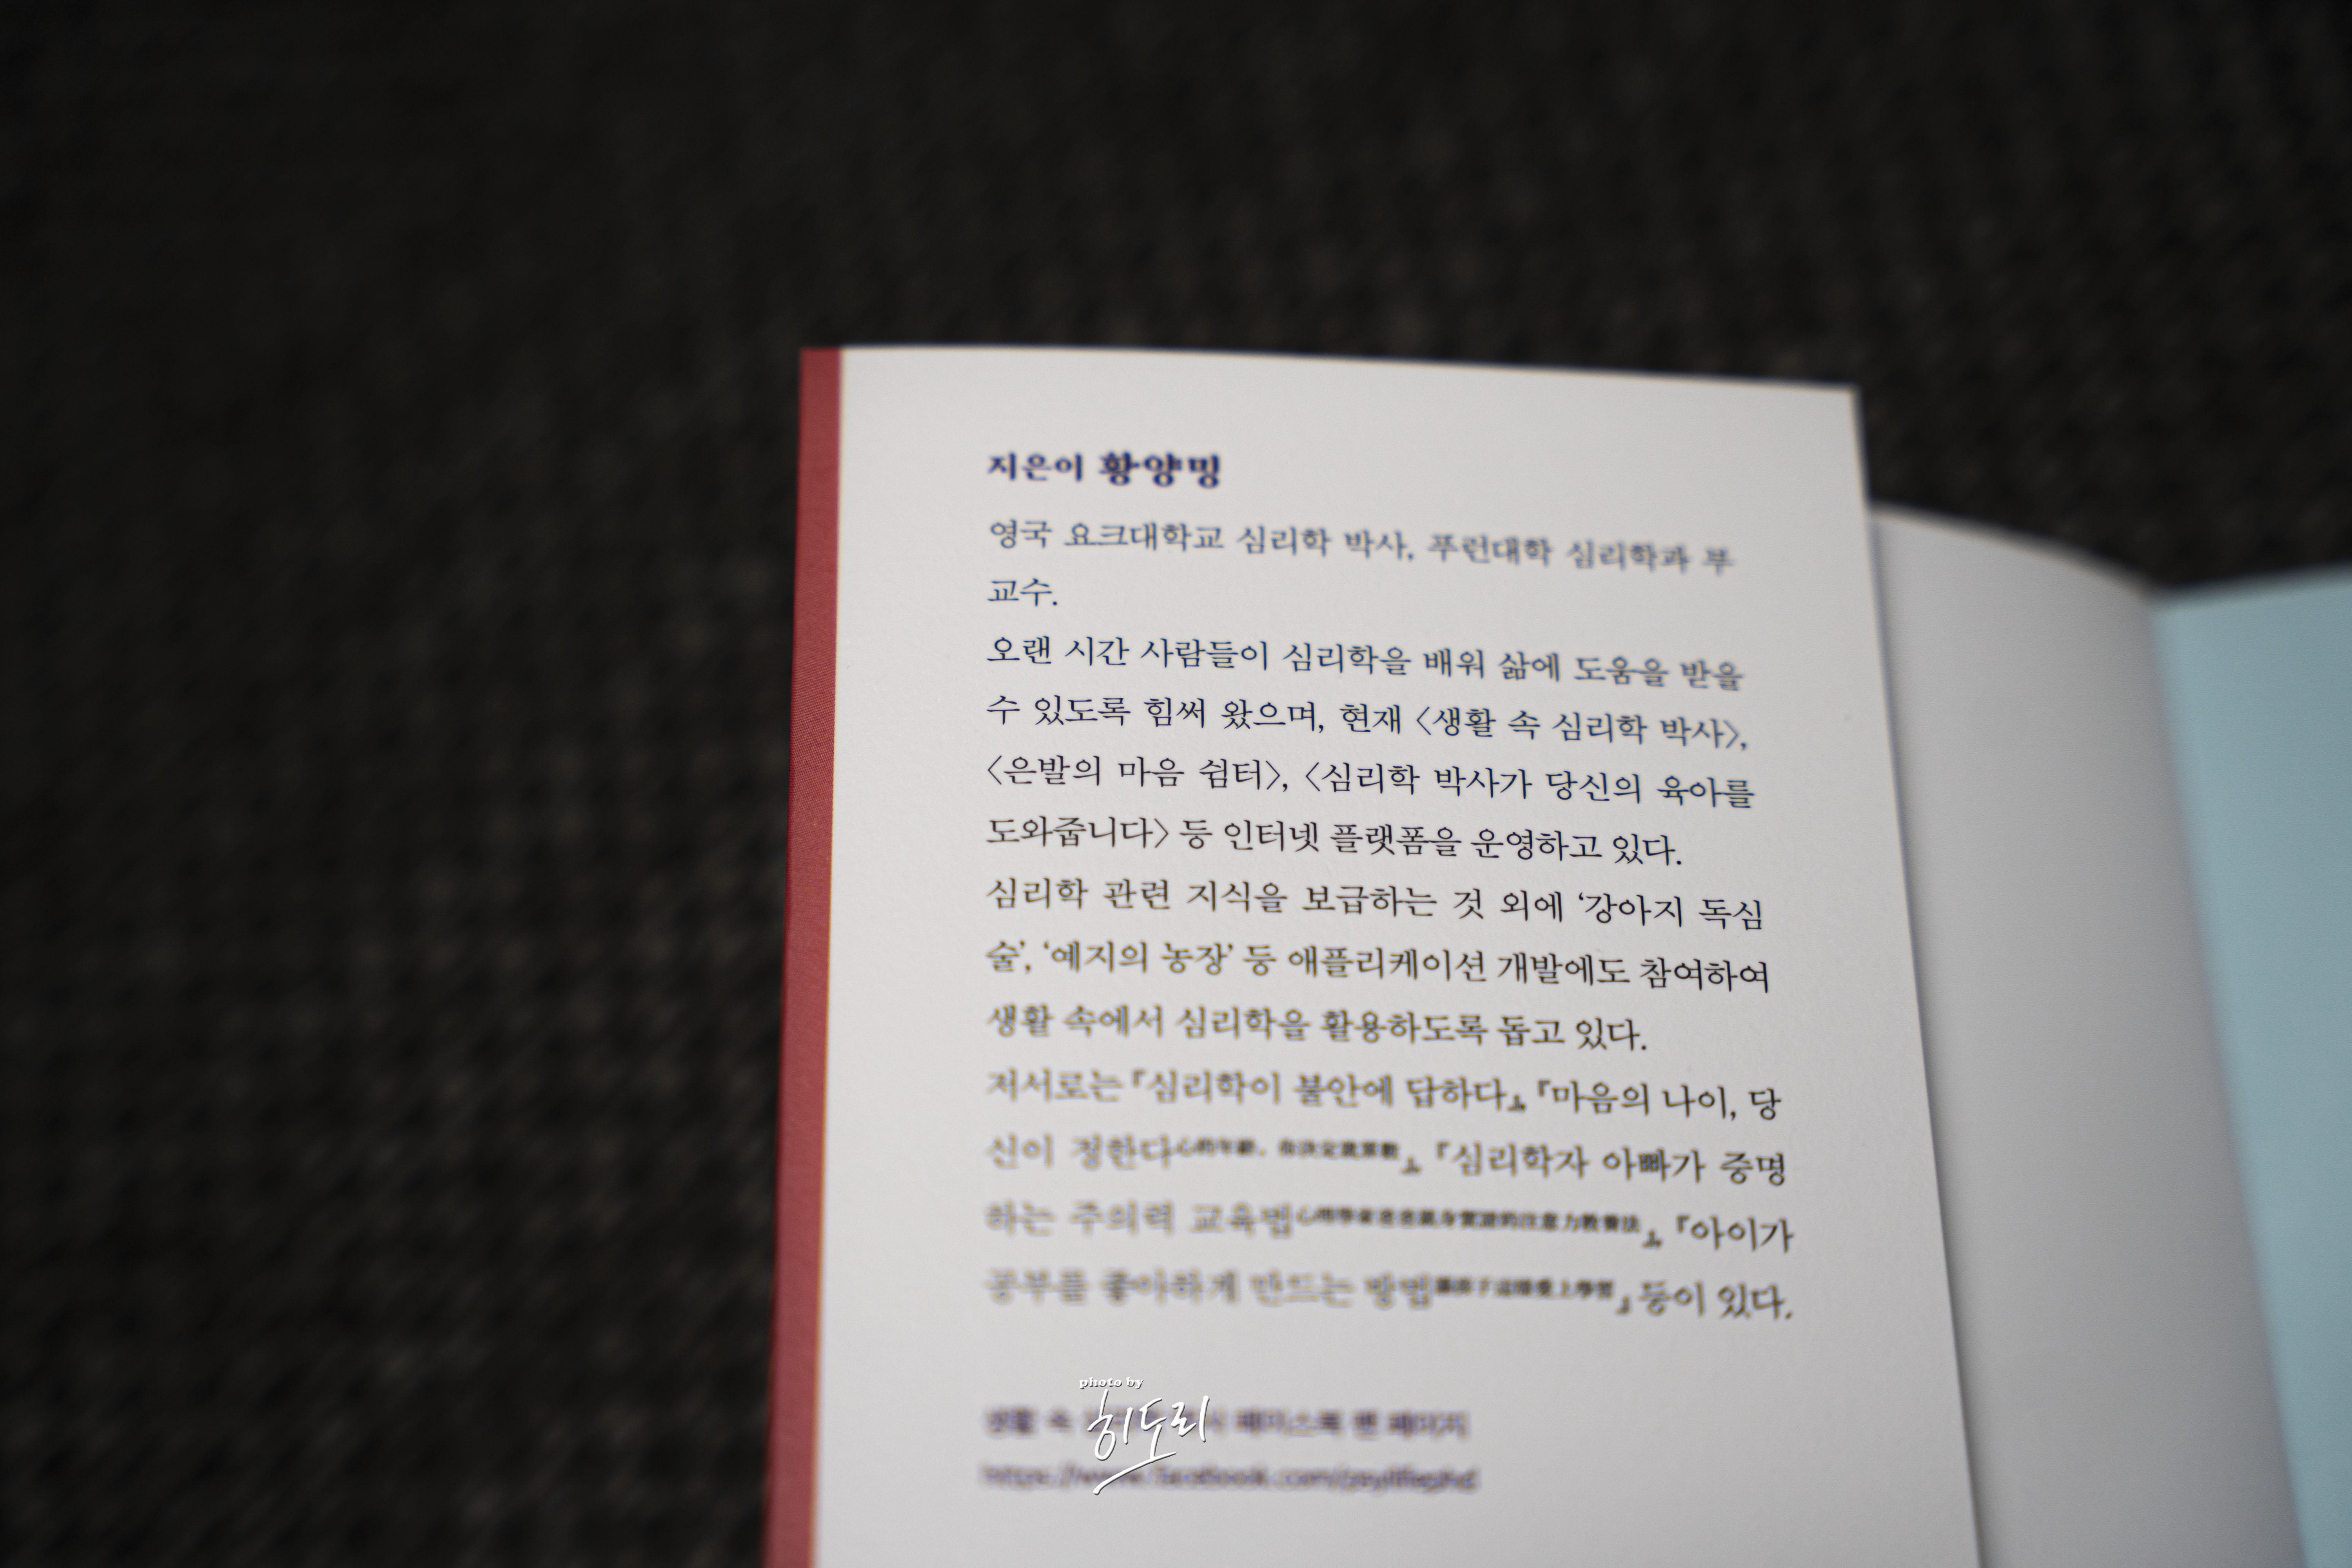 지은이 황양밍
영국 요크대학교 심리학 박사, 푸런대학 심리학과 부
교수.
오랜 시간 사람들이 심리학을 배워 삶에 도움을 받을
수 있도록 힘써 왔으며, 현재 〈생활 속 심리학 박사〉,
〈은발의 마음 쉼터〉, 〈심리학 박사가 당신의 육아를
도와줍니다〉 등 인터넷 플랫폼을 운영하고 있다.
심리학 관련 지식을 보급하는 것 외에 ‘강아지 독심
술’, ‘예지의 농장’ 등 애플리케이션 개발에도 참여하여
생활 속에서 심리학을 활용하도록 돕고 있다.
저서로는 『심리학이 불안에 답하다』, 『마음의 나이, 당
신이 정한다』, 『심리학자 아빠가 증명
하는 주의력 교육법』, 『아이가
공부를 좋아하게 만드는 방법』 등이 있다.
photo by
히도리
생활 속 페이스북 팬 페이지